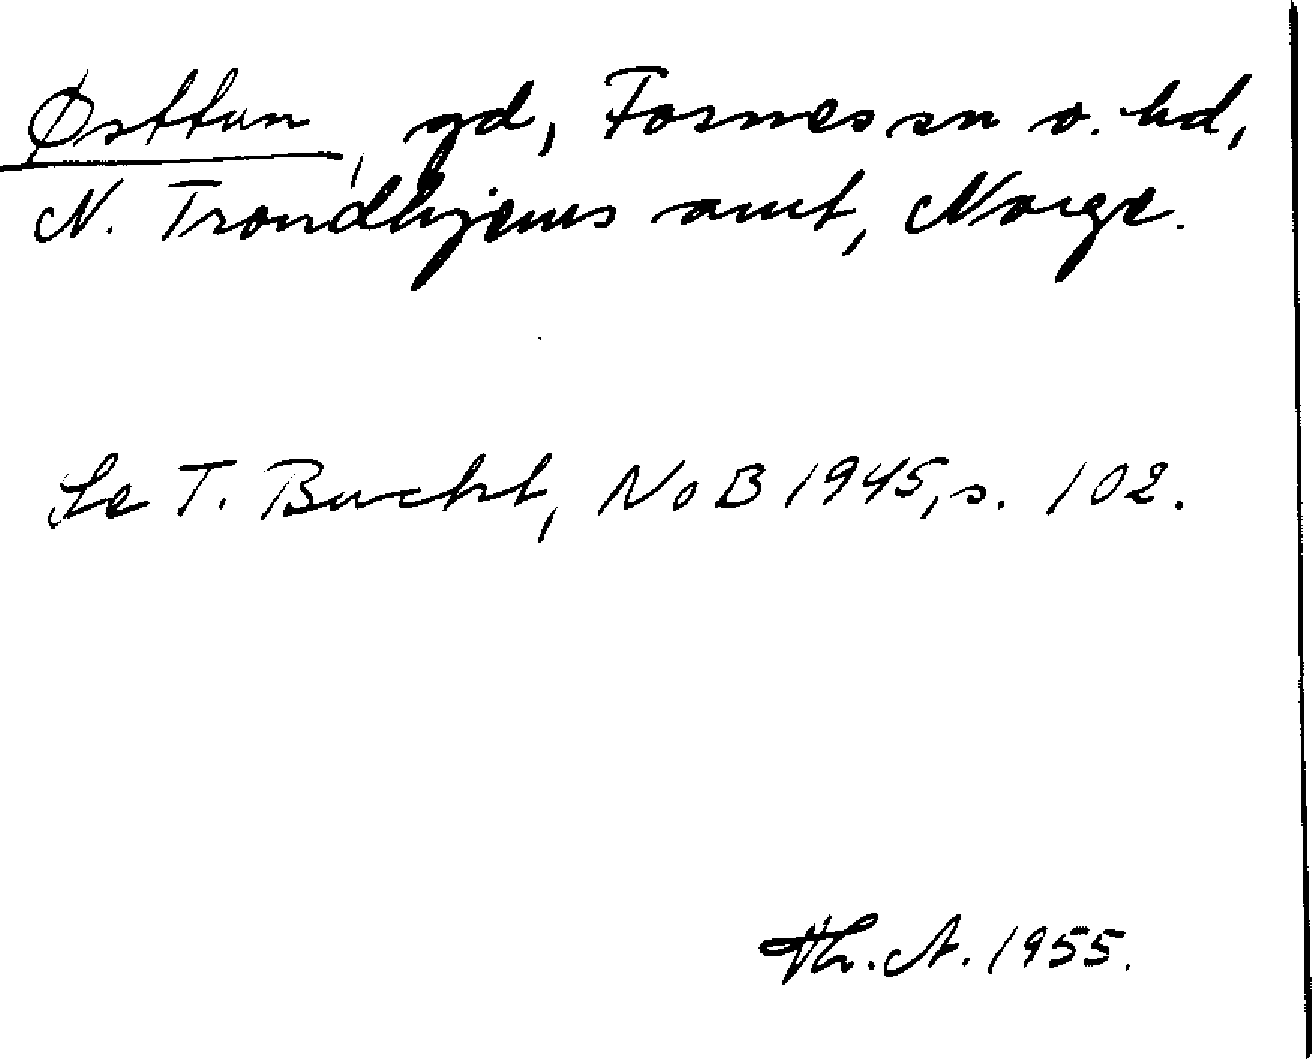 Østtun, gd, Fosnes sn o. hd,
N. Trondhjems amt, Norge.
Se T. Bucht, NoB 1945, s. 102.
Th. A. 1955.